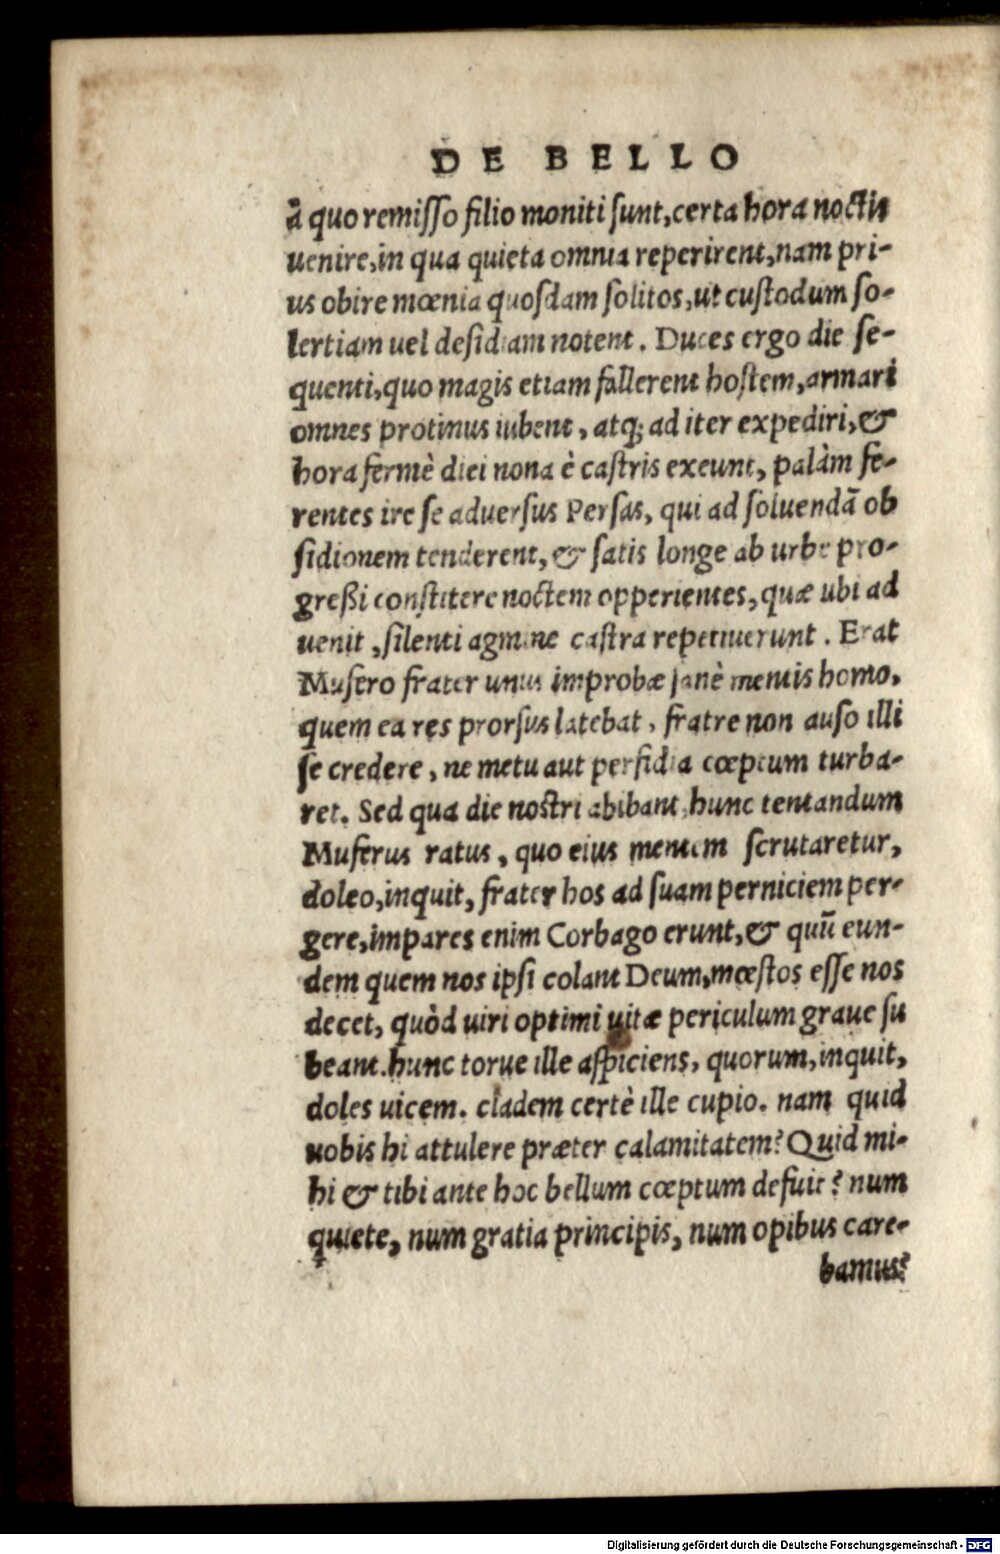 DE BELLO
à quo remiſſo filio moniti ſunt, certa hora noctis
uenire, in qua quieta omnia reperirent, nam pri-
us obire mœnia quoſdam ſolitos, ut cuſtodum ſo-
lertiam uel deſidiam notent. Duces ergo die ſe-
quenti, quo magis etiam fallerent hoſtem, armari
omnes protinus iubent, atq; ad iter expediri, &
hora fermè diei nona è caſtris exeunt, palàm fe-
rentes ire ſe aduerſus Perſas, qui ad ſoluendā ob
ſidionem tenderent, & ſatis longe ab urbe pro-
greßi conſtitere noctem opperientes, quæ ubi ad
uenit, ſilenti agmine caſtra repetiuerunt. Erat
Muſero frater unus improbæ ſanè mentis homo,
quem ea res prorſus latebat, fratre non auſo illi
ſe credere, ne metu aut perfidia cœptum turba-
ret. Sed qua die noſtri abibant, hunc tentandum
Muſerus ratus, quo eius mentem ſcrutaretur,
doleo, inquit, frater hos ad ſuam perniciem per-
gere, impares enim Corbago erunt, & quū eun-
dem quem nos ipſi colant Deum, mœſtos eſſe nos
decet, quòd uiri optimi uitæ periculum graue ſu
beant. hunc torue ille aſpiciens, quorum, inquit,
doles uicem. cladem certè ille cupio. nam quid
nobis hi attulere præter calamitatem? Quid mi-
hi & tibi ante hoc bellum cœptum defuit? num
quiete, num gratia principis, num opibus care-
bamus?
Digitalisierung gefördert durch die Deutsche Forschungsgemeinschaft - DFG